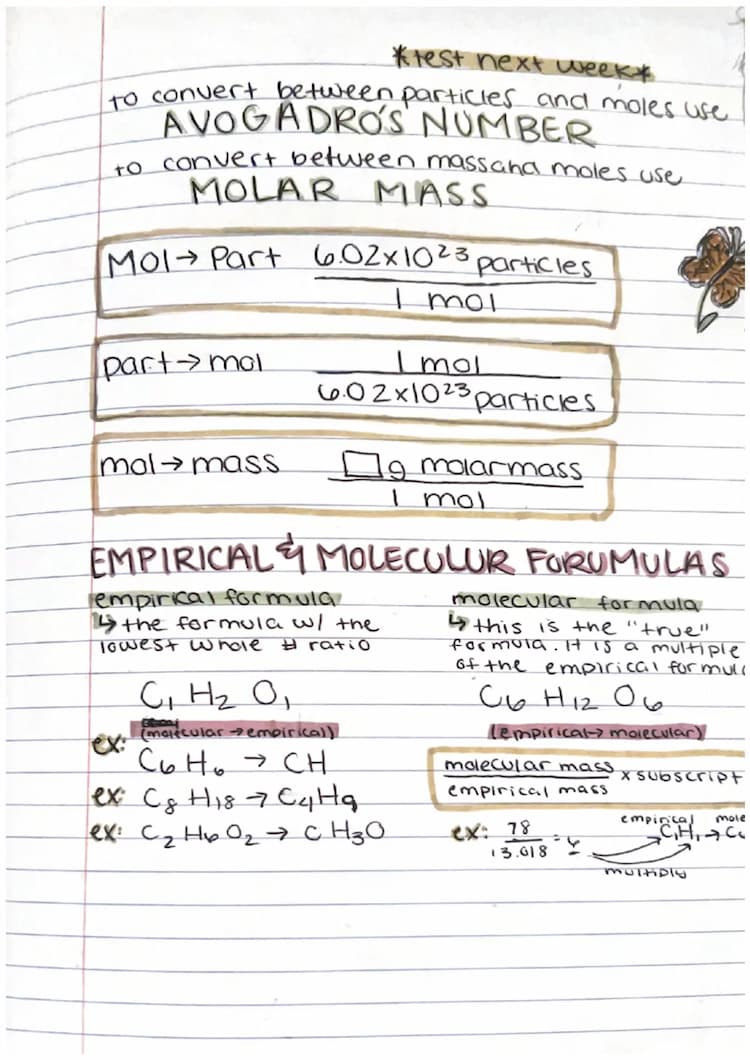 *test next week*
to convert between particles and moles use
AVOGADRO'S NUMBER
to convert between mass and moles use
MOLAR MASS
Mol → Part 6.02x10²³ particles
1 mol
part → mol 1 mol
6.02x10²³ particles
mol → mass □ g molar mass
1 mol
EMPIRICAL & MOLECULUR FORUMULAS
empirical formula
↳ the formula w/ the
lowest whole # ratio
C₁ H₂ O₁
(molecular → empirical)
ex:
C₆ H₆ → CH
ex: C₈ H₁₈ → C₄H₉
ex: C₂ H₆ O₂ → C H₃O
molecular formula
↳ this is the "true"
formula. It is a multiple
of the empirical formula
C₆ H₁₂ O₆
(empirical → molecular)
molecular mass x subscript
empirical mass
empirical
ex: 78 = C₁H₁ →
13.018
multiply